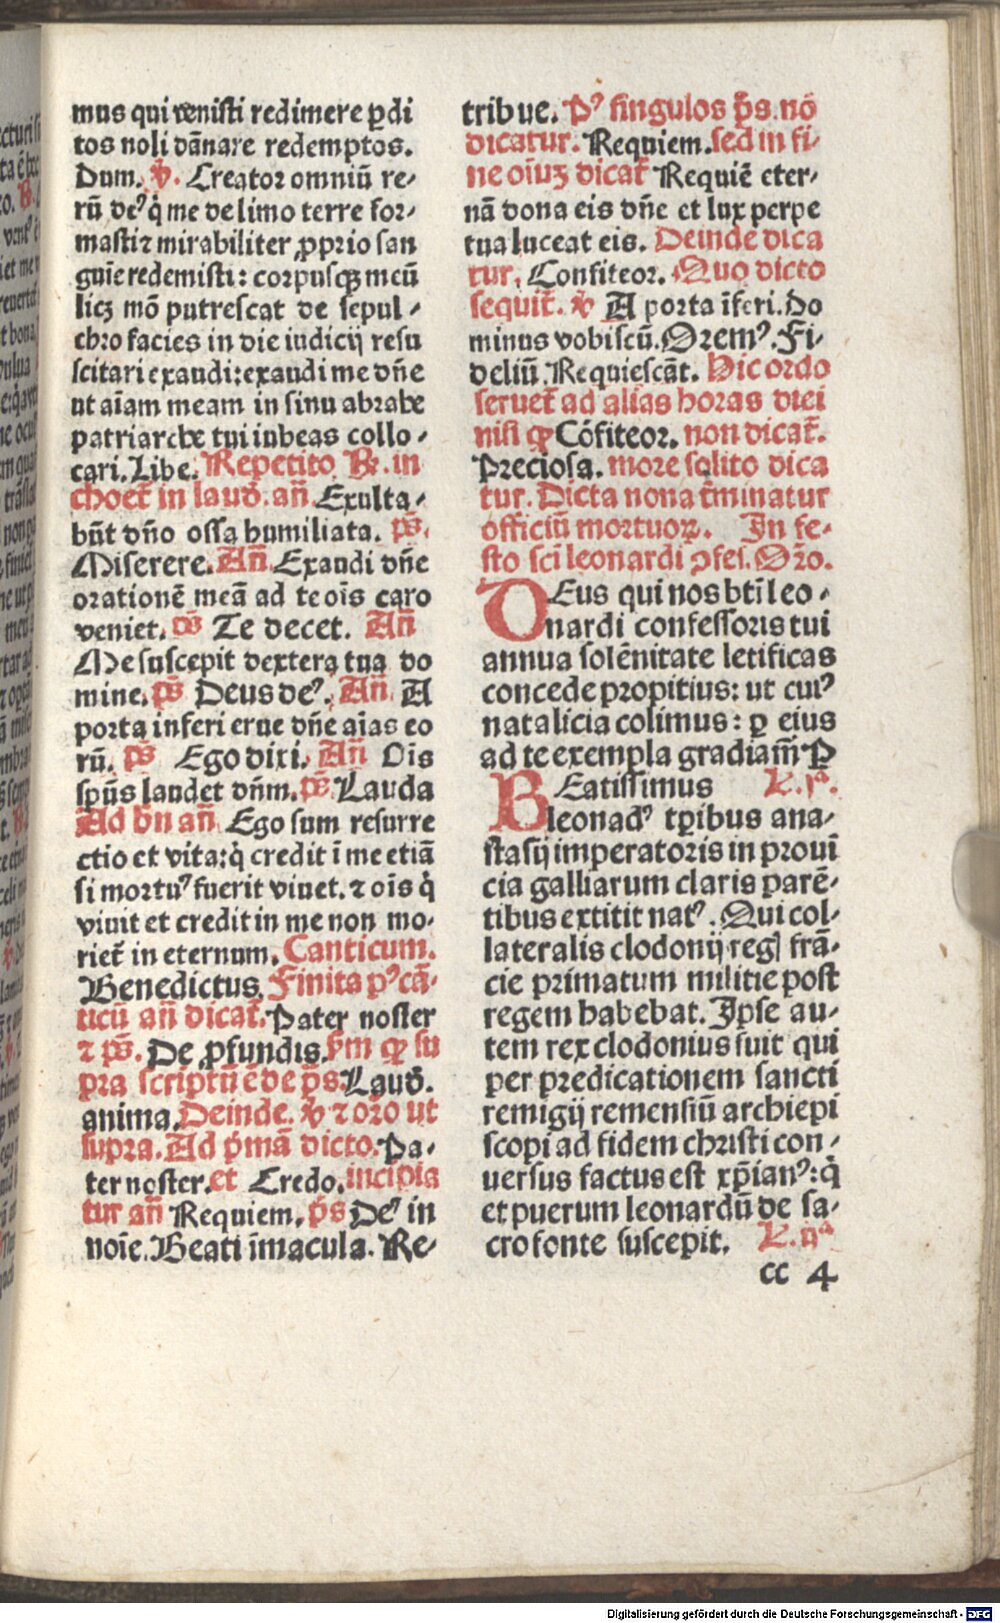 mus qui venisti redimere ꝑdi
tos noli dãnare redemptos.
Dum. ꝟ. Creator omniũ re-
rũ deꝰ q̇ me de limo terre for-
mastiꝛ mirabiliter ꝓprio san
guĩe redemisti: corpusqꝫ meũ
licꝫ mõ putrescat de sepul-
chro facies in die iudicij resu
scitari exaudi: exaudi me dñe
ut aĩam meam in sinu abrahe
patriarche tui iubeas collo-
cari. Libe. Repetito ℟. in
choet̃ in laud̃. añ Exulta-
bũt dño ossa humiliata. p̃s.
Miserere. Añ Exaudi dñe
orationẽ meã ad te oĩs caro
veniet. p̃s Te decet. Añ
Me suscepit dextera tua do
mine. p̃s Deus deꝰ. Añ A
porta inferi erue dñe aĩas eo
rũ. p̃s Ego dixi. Añ Oĩs
sp̃us laudet dñm. p̃s Lauda
Ad bñ añ Ego sum resurre
ctio et vita: q̇ credit ĩ me etiã
si mortuꝰ fuerit viuet. ꝛ oĩs q̇
viuit et credit in me non mo-
riet̃ in eternum. Canticum.
Benedictus. Finita pꝰ cã-
ticũ añ dicat̃. Pater noster
ꝛ p̃s. De ꝓfundis. p̃m qꝫ su
pra scriptũ ẽ de p̃s Laud̃.
anima. Deinde. ꝟ ꝛ orõ ut
supra. Ad p̃mã dicto. Pa-
ter noster. et Credo. incipia
tur añ Requiem. p̃s Deꝰ in
noĩe. Beati ĩmacula. Re-
tribue. Pꝰ singulos p̃s. nõ
dicatur. Requiem. sed in fi-
ne oĩuꝫ dicat̃ Requiẽ eter-
nã dona eis dñe et lux perpe
tua luceat eis. Deinde dica
tur. Confiteor. Quo dicto
sequit̃. ꝟ A porta ĩferi. Do
minus vobiscũ. Oremꝰ. Fi-
deliũ. Requiescãt. Hic ordo
seruet̃ ad alias horas diei
nisi qꝫ Cõfiteor. non dicat̃.
Preciosa. more solito dica
tur. Dicta nona t̃minatur
officiũ mortuoꝝ. In fe-
sto sc̃i leonardi ꝯfes. Orõ.
DEus qui nos btĩ leo-
nardi confessoris tui
annua solẽnitate letificas
concede propitius: ut cuiꝰ
natalicia colimus: ꝑ eius
ad te exempla gradiam̃ P
BEatissimus L. pᵃ.
leonadꝰ tꝑibus ana-
stasij imperatoris in prouĩ
cia galliarum claris parẽ-
tibus extitit natꝰ. Qui col-
lateralis clodonij regꝭ frã-
cie primatum militie post
regem habebat. Ipse au-
tem rex clodonius fuit qui
per predicationem sancti
remigij remensiũ archiepi
scopi ad fidem christi con-
uersus factus est xp̃ianꝰ: q̇
et puerum leonardũ de sa-
cro fonte suscepit. L. ijᵃ
cc 4
Digitalisierung gefördert durch die Deutsche Forschungsgemeinschaft - DFG